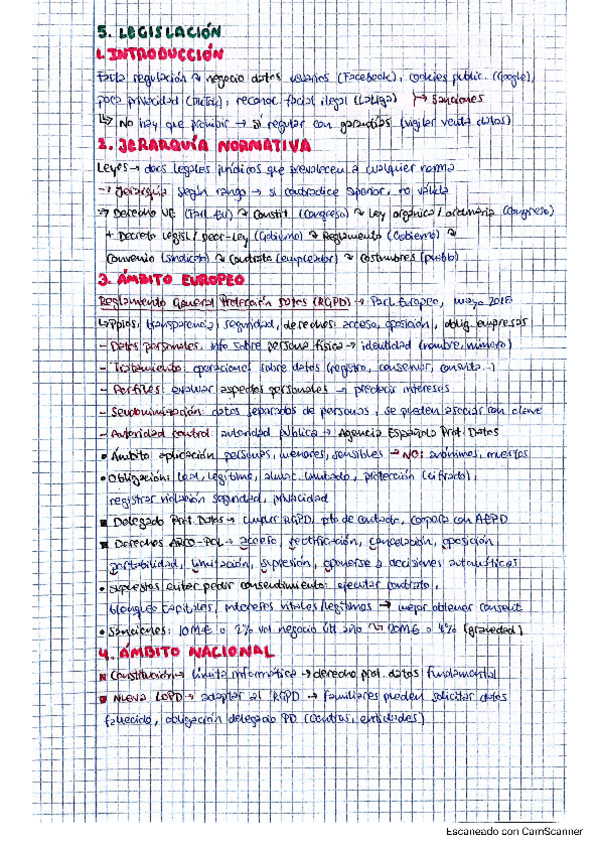 5. LEGISLACIÓN
1. INTRODUCCIÓN
Falta regulación → negocio datos usuarios (Facebook), cookies public. (Google),
poca privacidad , reconoc. facial ilegal (LaLiga) → Sanciones
↳ No hay que prohibir → sí regular con garantías (vigilar venta datos)
2. JERARQUÍA NORMATIVA
Leyes → docs legales jurídicos que prevalecen a cualquier norma
→ Jerarquía según rango → si contradice superior, no válida
→ Derecho UE (Parl. Eu) → Constit. (Congreso) → Ley orgánica / ordinaria (Congreso)
+ Decreto Legisl / -Ley (Gobierno) → Reglamento (Gobierno) →
Convenio (sindicato) → Contrato (empleador) → Costumbres (pueblo)
3. ÁMBITO EUROPEO
Reglamento General Protección Datos (RGPD) → Parl. Europeo, mayo 2018
↳ Ppios: transparencia, seguridad, derechos: acceso, oposición, oblig. empresas
- Datos personales: info sobre persona física → identidad (nombre, número)
- Tratamiento: operaciones sobre datos (registro, conservar, consulta...)
- Perfiles: evaluar aspectos personales → predecir intereses
- Seudonimización: datos separados de personas, se pueden asociar con clave
- Autoridad control: autoridad pública → Agencia Española Prot. Datos
• Ámbito aplicación: personas, menores, sensibles → NO: anónimos, muertos
• Obligación: leal, legítimo, almac. limitado, protección (cifrado),
registrar violación seguridad, privacidad
▪ Delegado Prot. Datos → cumplir RGPD, pto de contacto, coopera con AEPD
▪ Derechos ARCO-POL → acceso, rectificación, cancelación, oposición,
portabilidad, limitación, supresión, oponerse a decisiones automáticas
• Supuestos evitar pedir consentimiento: ejecutar contrato,
intereses vitales/legítimos → mejor obtener consent.
• Sanciones: 10M€ o 2% vol negocio últ año → 20M€ o 4% (gravedad)
4. ÁMBITO NACIONAL
▪ Constitución → Limita informática → derecho prot. datos fundamental
▪ Nueva LOPD → adaptar al RGPD → familiares pueden solicitar datos
fallecido, obligación delegado PD (centros, entidades)
Escaneado con CamScanner